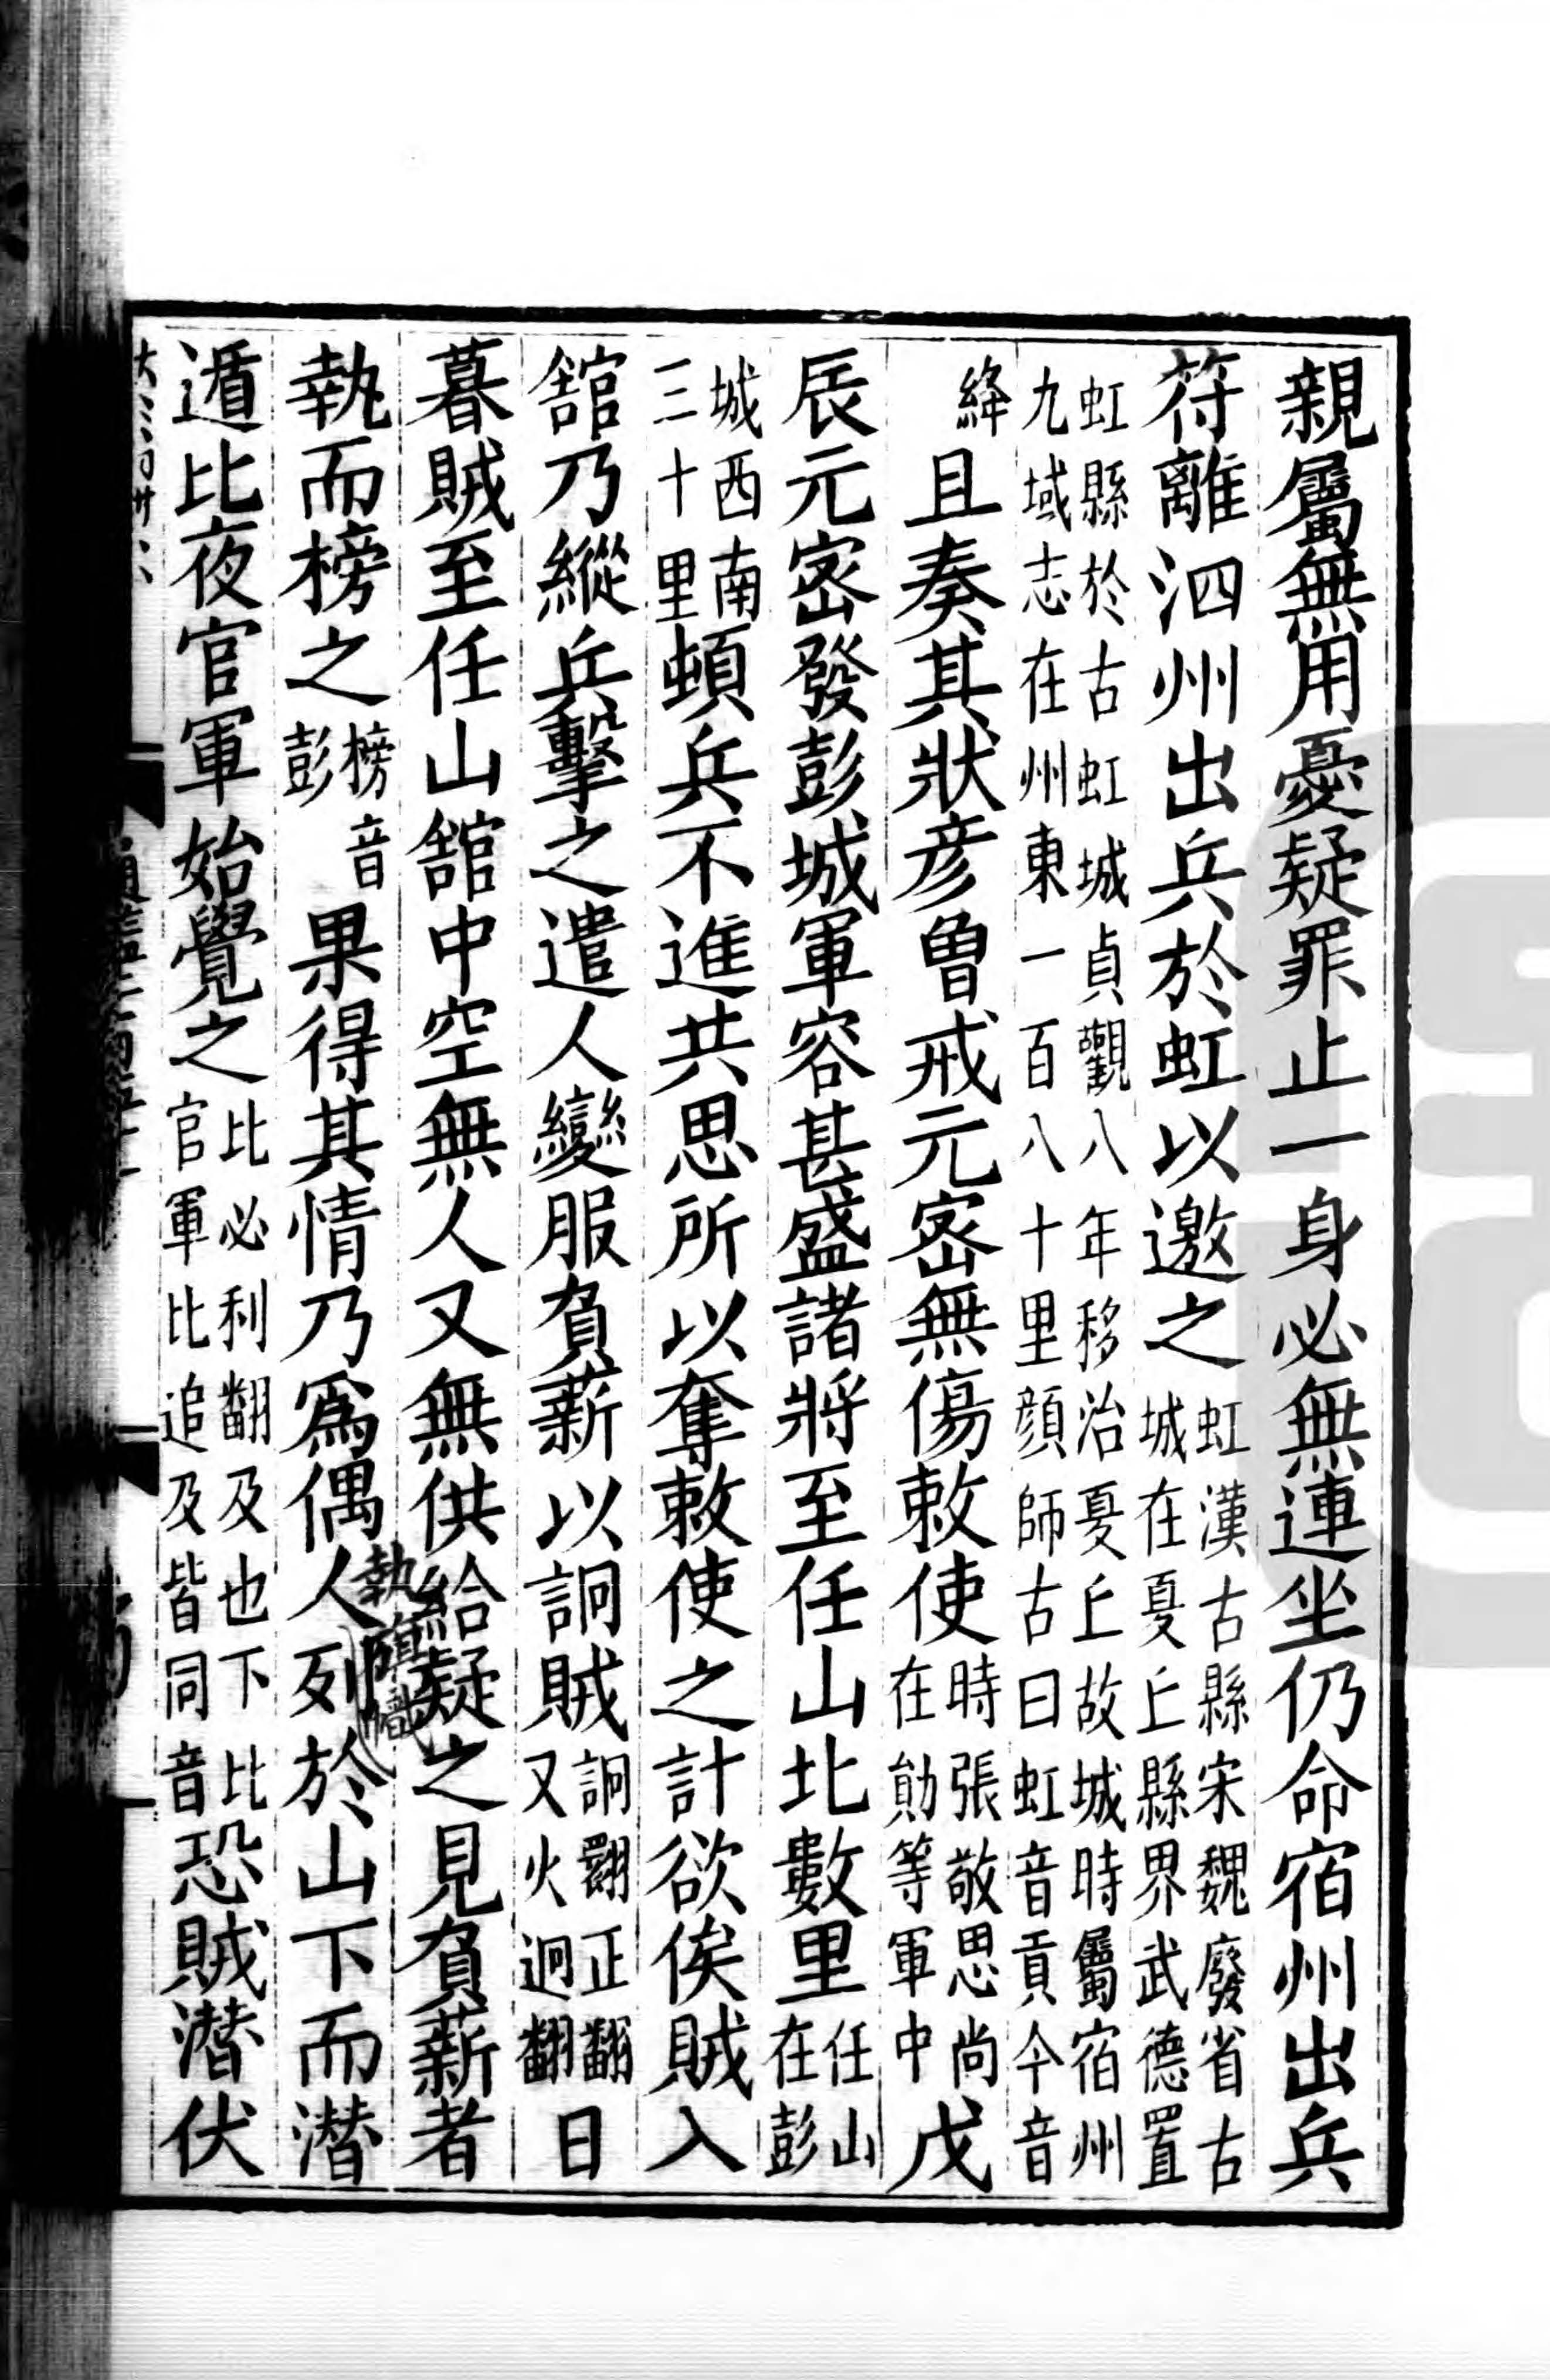 親屬無用憂疑罪止一身必無連坐仍命宿州出兵
符離泗州出兵於虹以邀之虹漢古縣宋魏廢省古城在夏丘縣界武德置
虹縣於古虹城貞觀八年移治夏丘故城時屬宿州九域志在州東一百八十里顏師古曰虹音貢今音
絳且奏其狀彥曽戒元密無傷敕使時張敬思尚在勛等軍中戊
辰元密發彭城軍容甚盛諸將至任山北數里任山在彭
城西南三十里頓兵不進共思所以奪敕使之計欲俟賊入
舘乃縱兵擊之遣人變服負薪以詗賊詗翾正翻又火迥翻日
暮賊至任山舘中空無人又無供給疑之見負薪者
執而榜之榜音彭果得其情乃爲偶人執旗幟列於山下而潛
遁比夜官軍始覺之比必利翻及也下比官軍比追及皆同音恐賊潛伏